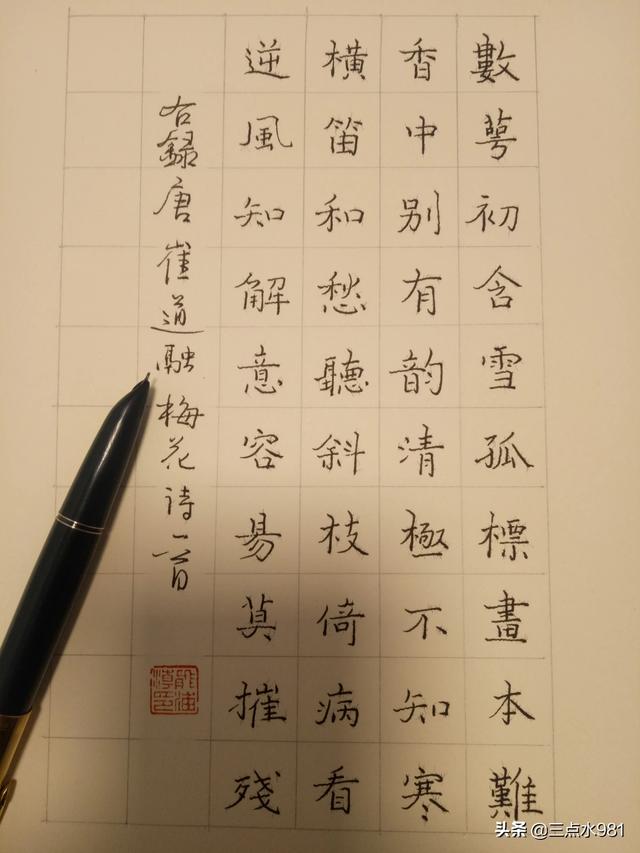 數萼初含雪孤標畫本難
香中别有韵清極不知寒
横笛和愁聽斜枝倚病看
逆風知解意容易莫摧殘
右錄唐崔道融梅花詩一首
头条 @三点水981